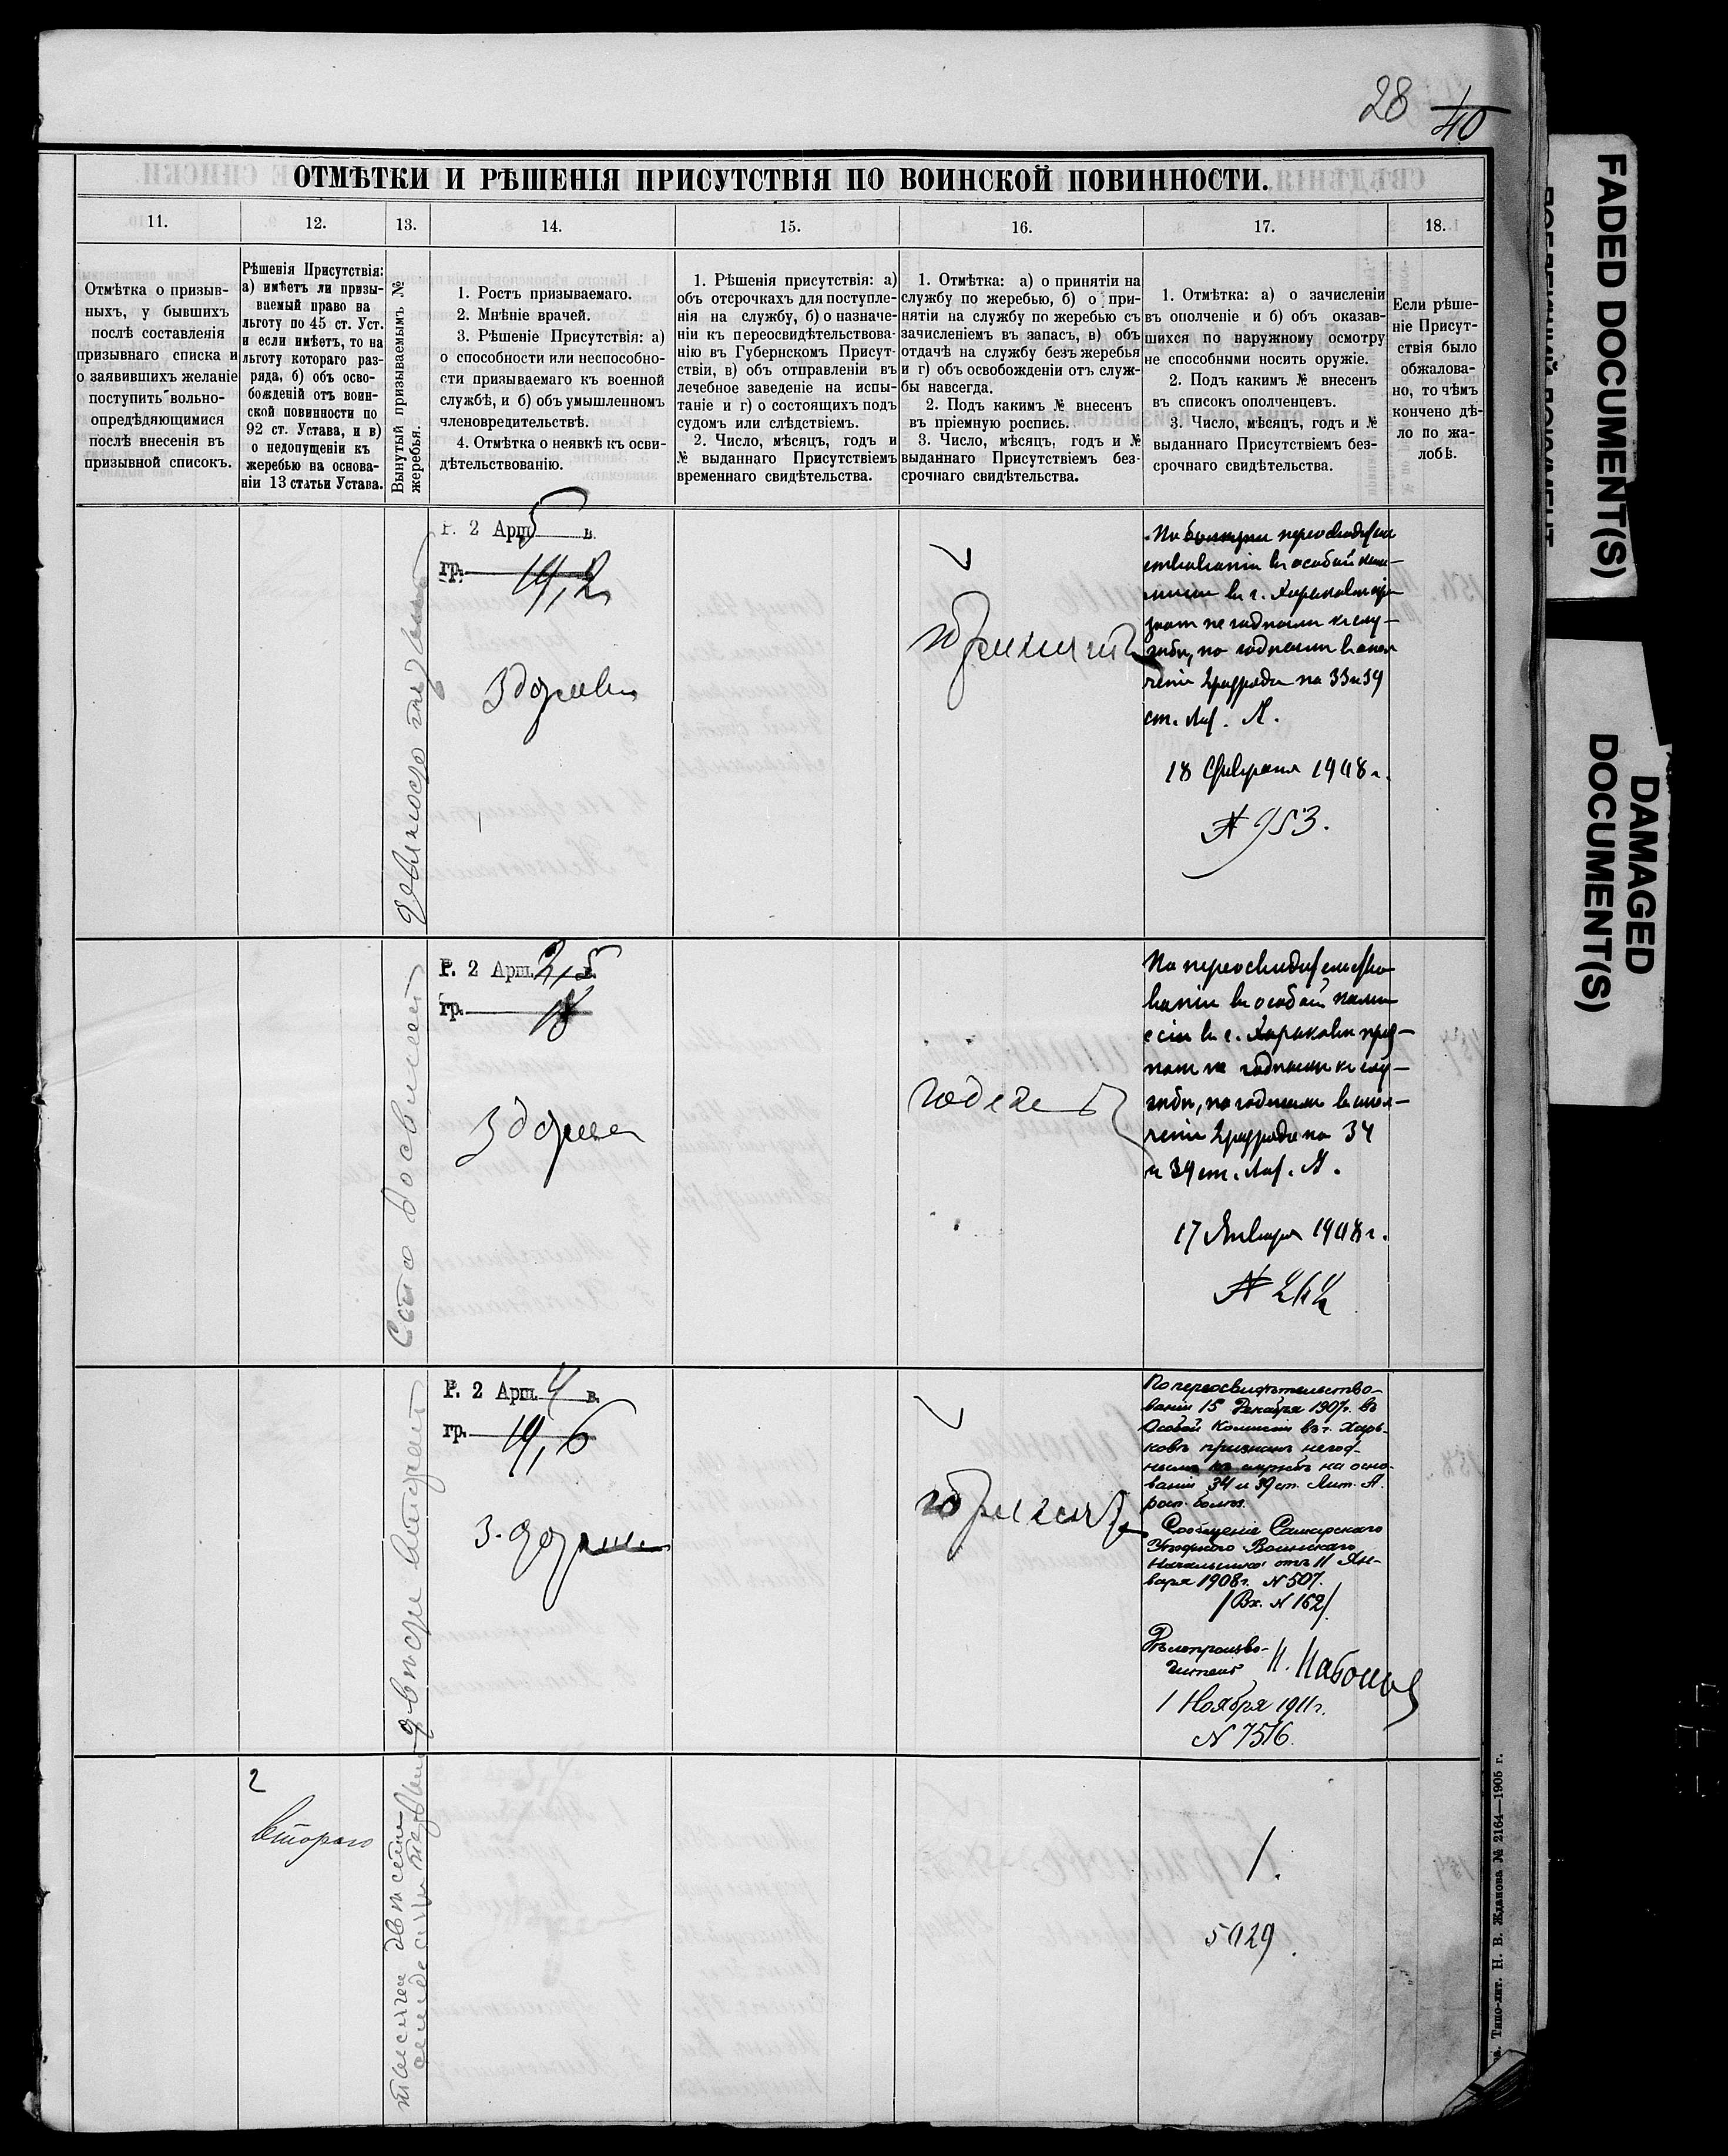 28 40
ОТМѢТКИ И РѢШЕНІЯ ПРИСУТСТВІЯ ПО ВОИНСКОЙ ПОВИННОСТИ.
11. 12. 13. 14. 15. 16. 17. 18.
Отмѣтка о призыв-
ныхъ, у бывшихъ
послѣ составленія
призывнаго списка и
о заявившихъ желаніе
поступить вольно-
опредѣдяющимися
послѣ внесенія въ
призывной списокъ.
Рѣшенія Присутствія:
а) имѣетъ ли призы-
ваемый право на
льготу по 45 ст. Уст.
и если имѣетъ, то на
льготу котораго раз-
ряда, б) объ осво-
божденіи отъ воин-
ской повинности по
92 ст. Устава, и в)
о недопущеніи къ
жеребью на основа-
ніи 13 статьи Устава.
Вынутый призываемымъ №
жеребья.
1. Ростъ призываемаго.
2. Мнѣніе врачей.
3. Рѣшеніе Присутствія: а)
о способности или неспособно-
сти призываемаго къ военной
службѣ, и б) объ умышленномъ
членовредительствѣ.
4. Отмѣтка о неявкѣ къ осви-
дѣтельствованію.
1. Рѣшенія присутствія: а)
объ отсрочкахъ для поступле-
нія на службу, б) о назначе-
ніи къ переосвидѣтельствова-
нію въ Губернскомъ Присут-
ствіи, в) объ отправленіи въ
лечебное заведеніе на испы-
таніе и г) о состоящихъ подъ
судомъ или слѣдствіемъ.
2. Число, мѣсяцъ, годъ и
№ выданнаго Присутствіемъ
временнаго свидѣтельства.
1. Отмѣтка: а) о принятіи на
службу по жеребью, б) о при-
нятіи на службу по жеребью съ
зачисленіемъ въ запасъ, в) объ
отдачѣ на службу безъ жеребья
и г) объ освобожденіи отъ служ-
бы навсегда.
2. Подъ какимъ № внесенъ
въ пріемную роспись.
3. Число, мѣсяцъ, годъ и №
выданнаго Присутствіемъ без-
срочнаго свидѣтельства.
1. Отмѣтка: а) о зачисленіи
въ ополченіе и б) объ оказав-
шихся по наружному осмотру
не способными носить оружіе.
2. Подъ какимъ № внесенъ
въ списокъ ополченцевъ.
3. Число, мѣсяцъ, годъ и №
выданнаго Присутствіемъ без-
срочнаго свидѣтельства.
Если рѣше-
ніе Присут-
ствія было
обжалова-
но, то чѣмъ
кончено дѣ-
ло по жа-
лобѣ.
девяносто
Р. 2 Арш. 5 в.
гр. 19,2
Здоровъ
ствованіи въ особой ком-
миссіи въ г. Харьковѣ приз-
нанъ не годнымъ къ служ-
жбѣ, но годнымъ въ опол-
ченіе 2 разряда по 33 и 39
ст. Лит. А.
18 Февраля 1908 г.
№ 953.
Сто восемьсот
Р. 2 Арш. 2,5 в.
гр. 18
Здоровъ
годенъ
По переосвидѣтельство-
ваніи въ особой комми-
ссіи въ г. Харьковѣ приз-
нанъ не годнымъ къ слу-
жбѣ, но годнымъ въ опол-
ченіе 2 разряда по 34
и 39 ст. Лит. А.
17 Января 1908 г.
№ 242
двѣсти
Р. 2 Арш. 4 в.
гр. 19,6
Здоровъ
По переосвидѣтельство-
ваніи 15 Декабря 1907 г. въ
Особой Комиссіи въ г. Харь-
ковѣ признанъ негод-
нымъ къ службѣ на осно-
ваніи 34 и 39 ст. Лит. А.
росп. болѣз.
Сообщеніе
Уѣзднаго Воинскаго
Начальника отъ 11 Ян-
варя 1908 г. № 507.
/Вх. № 162/.
Дѣлопроизво-
дитель Н.
1 Ноября 1911 г.
№ 7516.
2
второго
тысяча двѣсти
1.
5029.
Типо-лит. Н. В. Жданова № 2164—1905 г.
FADED DOCUMENT(S)
DAMAGED
DOCUMENT(S)